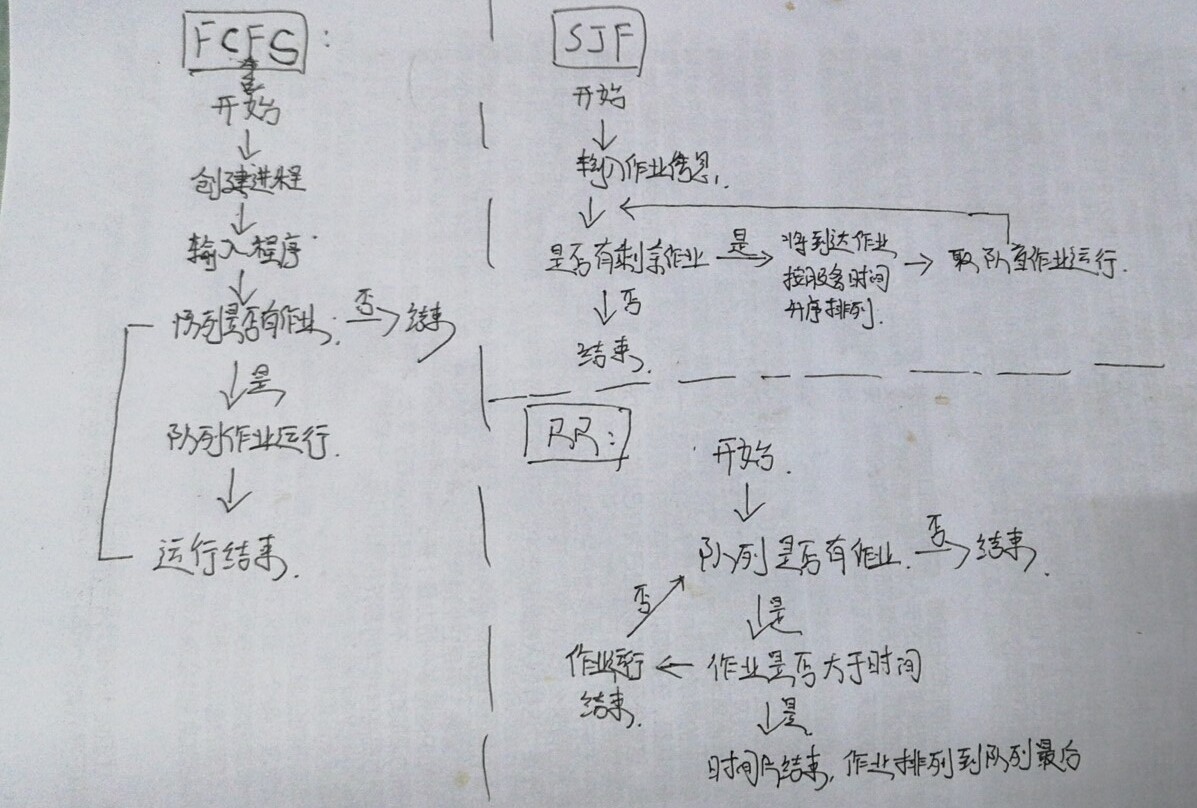 FCFS:
开始
创建进程
输入程序
队列是否有作业. 否 结束
是
队列作业运行.
运行结束.
SJF
开始
输入作业信息.
是否有剩余作业 是 将到达作业 取队首作业运行.
按服务时间
升序排列.
否
结束.
RR:
开始.
队列是否有作业. 否 结束.
否 是
作业运行 作业是否大于时间
结束. 是
时间片结束, 作业排列到队列最后